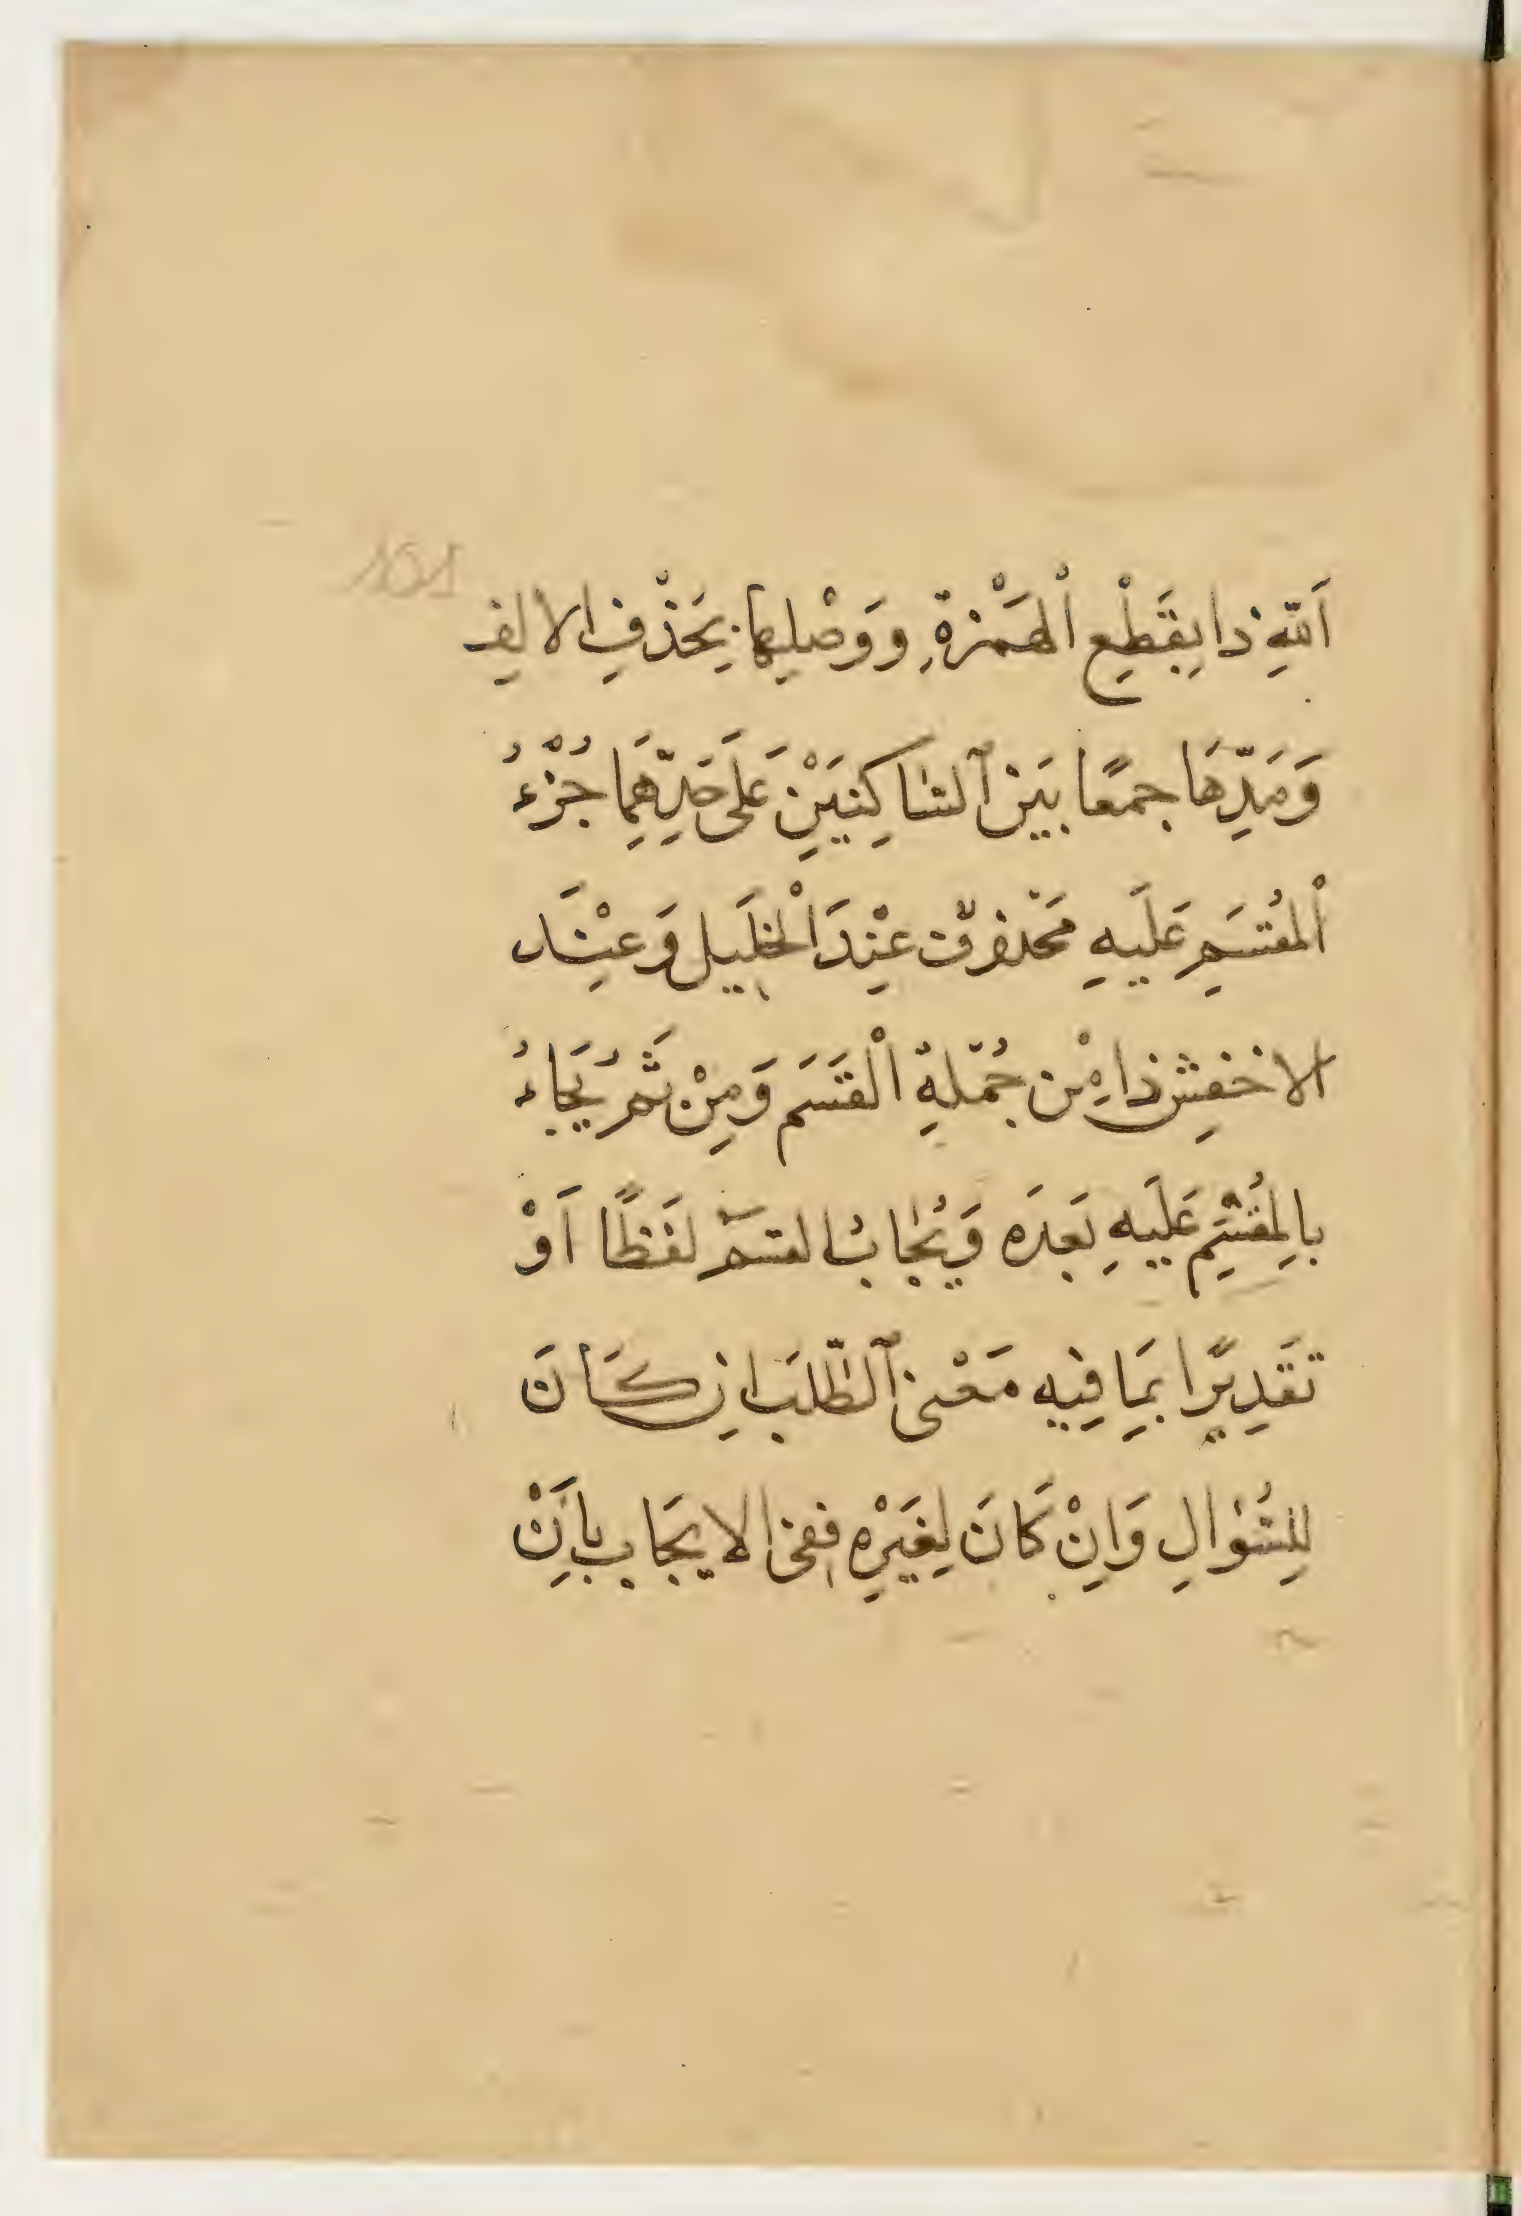 101
اَللّٰهِ ذَا بِقَطْعِ اْلهَمْزةِ وَوَصْلِهَا بِحَذْفِ الالِفِ
وَمَدِّهَا جمعًا بَيَن ٱلسَّاكِنَيْنِ عَلَى حَدِّهِمَا جُزْءُ
اْلمُقسَمِ عَلَيهِ مَحْذوفٌ عنْدَ اْلخلَيِل وَعنْدَ
الاخفشِ ذا مِن جُمْلةِ اْلقَسَم وَمِنْ ثَمَّ يُجَاءُ
بالمُقْسَمِ عَلَيهِ بَعدَه وَيُجابُ القسَم لَفَظًا اَوْ
تَقَدِيرًا بمَا فيِه مَعْنى ٱلطَّلَب اِن كَانَ
لِلسُّؤالِ وَاِنْ كَانَ لِغَيْرِه ففى الايجَاب بِاَنْ